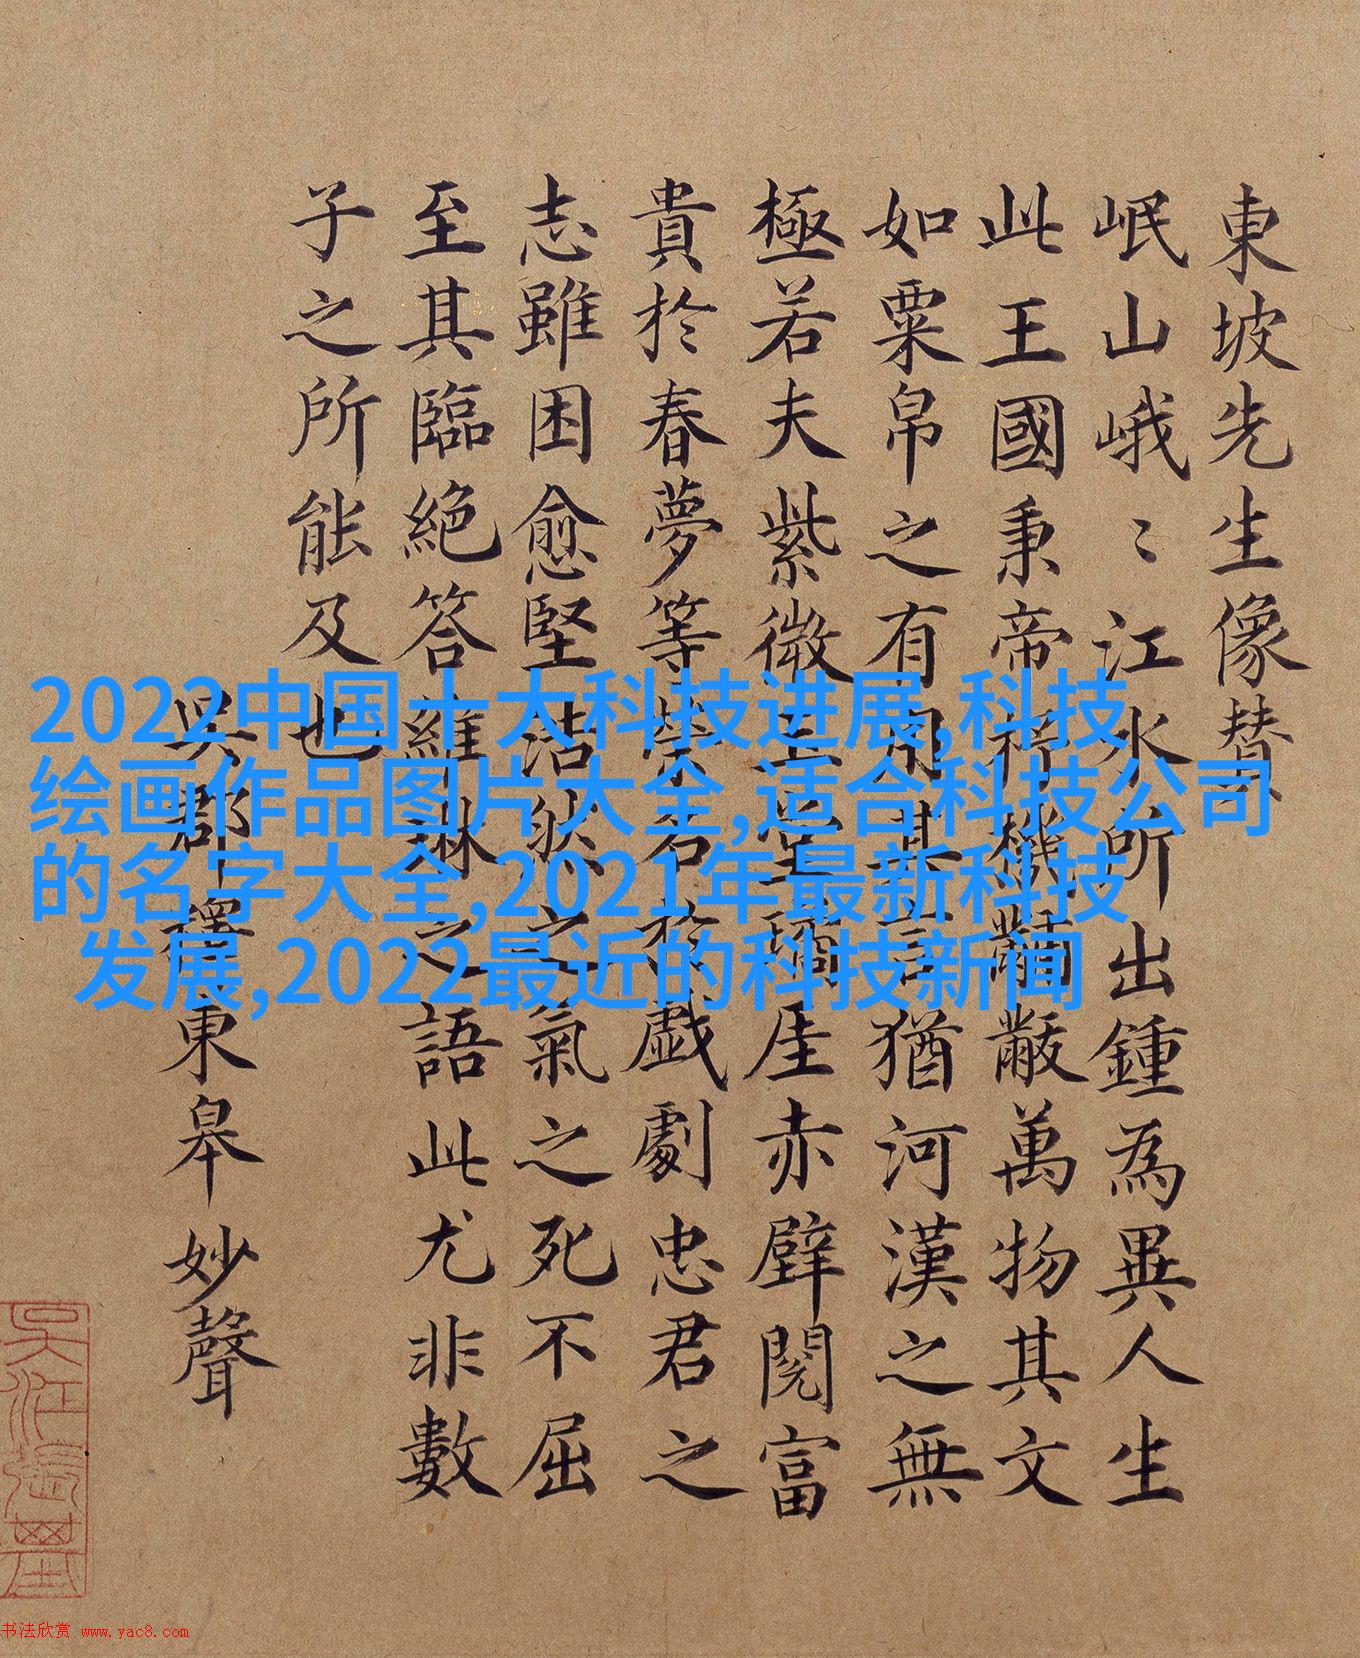 東坡先生像贊
岷山峨〻江水所出鍾為異人生
此王國秉帝杼機黼黻萬物其文
如粟帛之有用其言猶河漢之無
極若夫紫微玉堂瓊厓赤壁閱富
貴於春夢等榮名於戲劇忠君之
志雖困愈堅浩然之氣之死不屈
至其臨絕答維琳之語此尤非數
子之所能及也
吳郡釋東皋妙聲
2022中国十大科技进展,科技
绘画作品图片大全,适合科技公司
的名字大全,2021年最新科技
发展,2022最近的科技新闻
书法欣赏 www.yac8.com